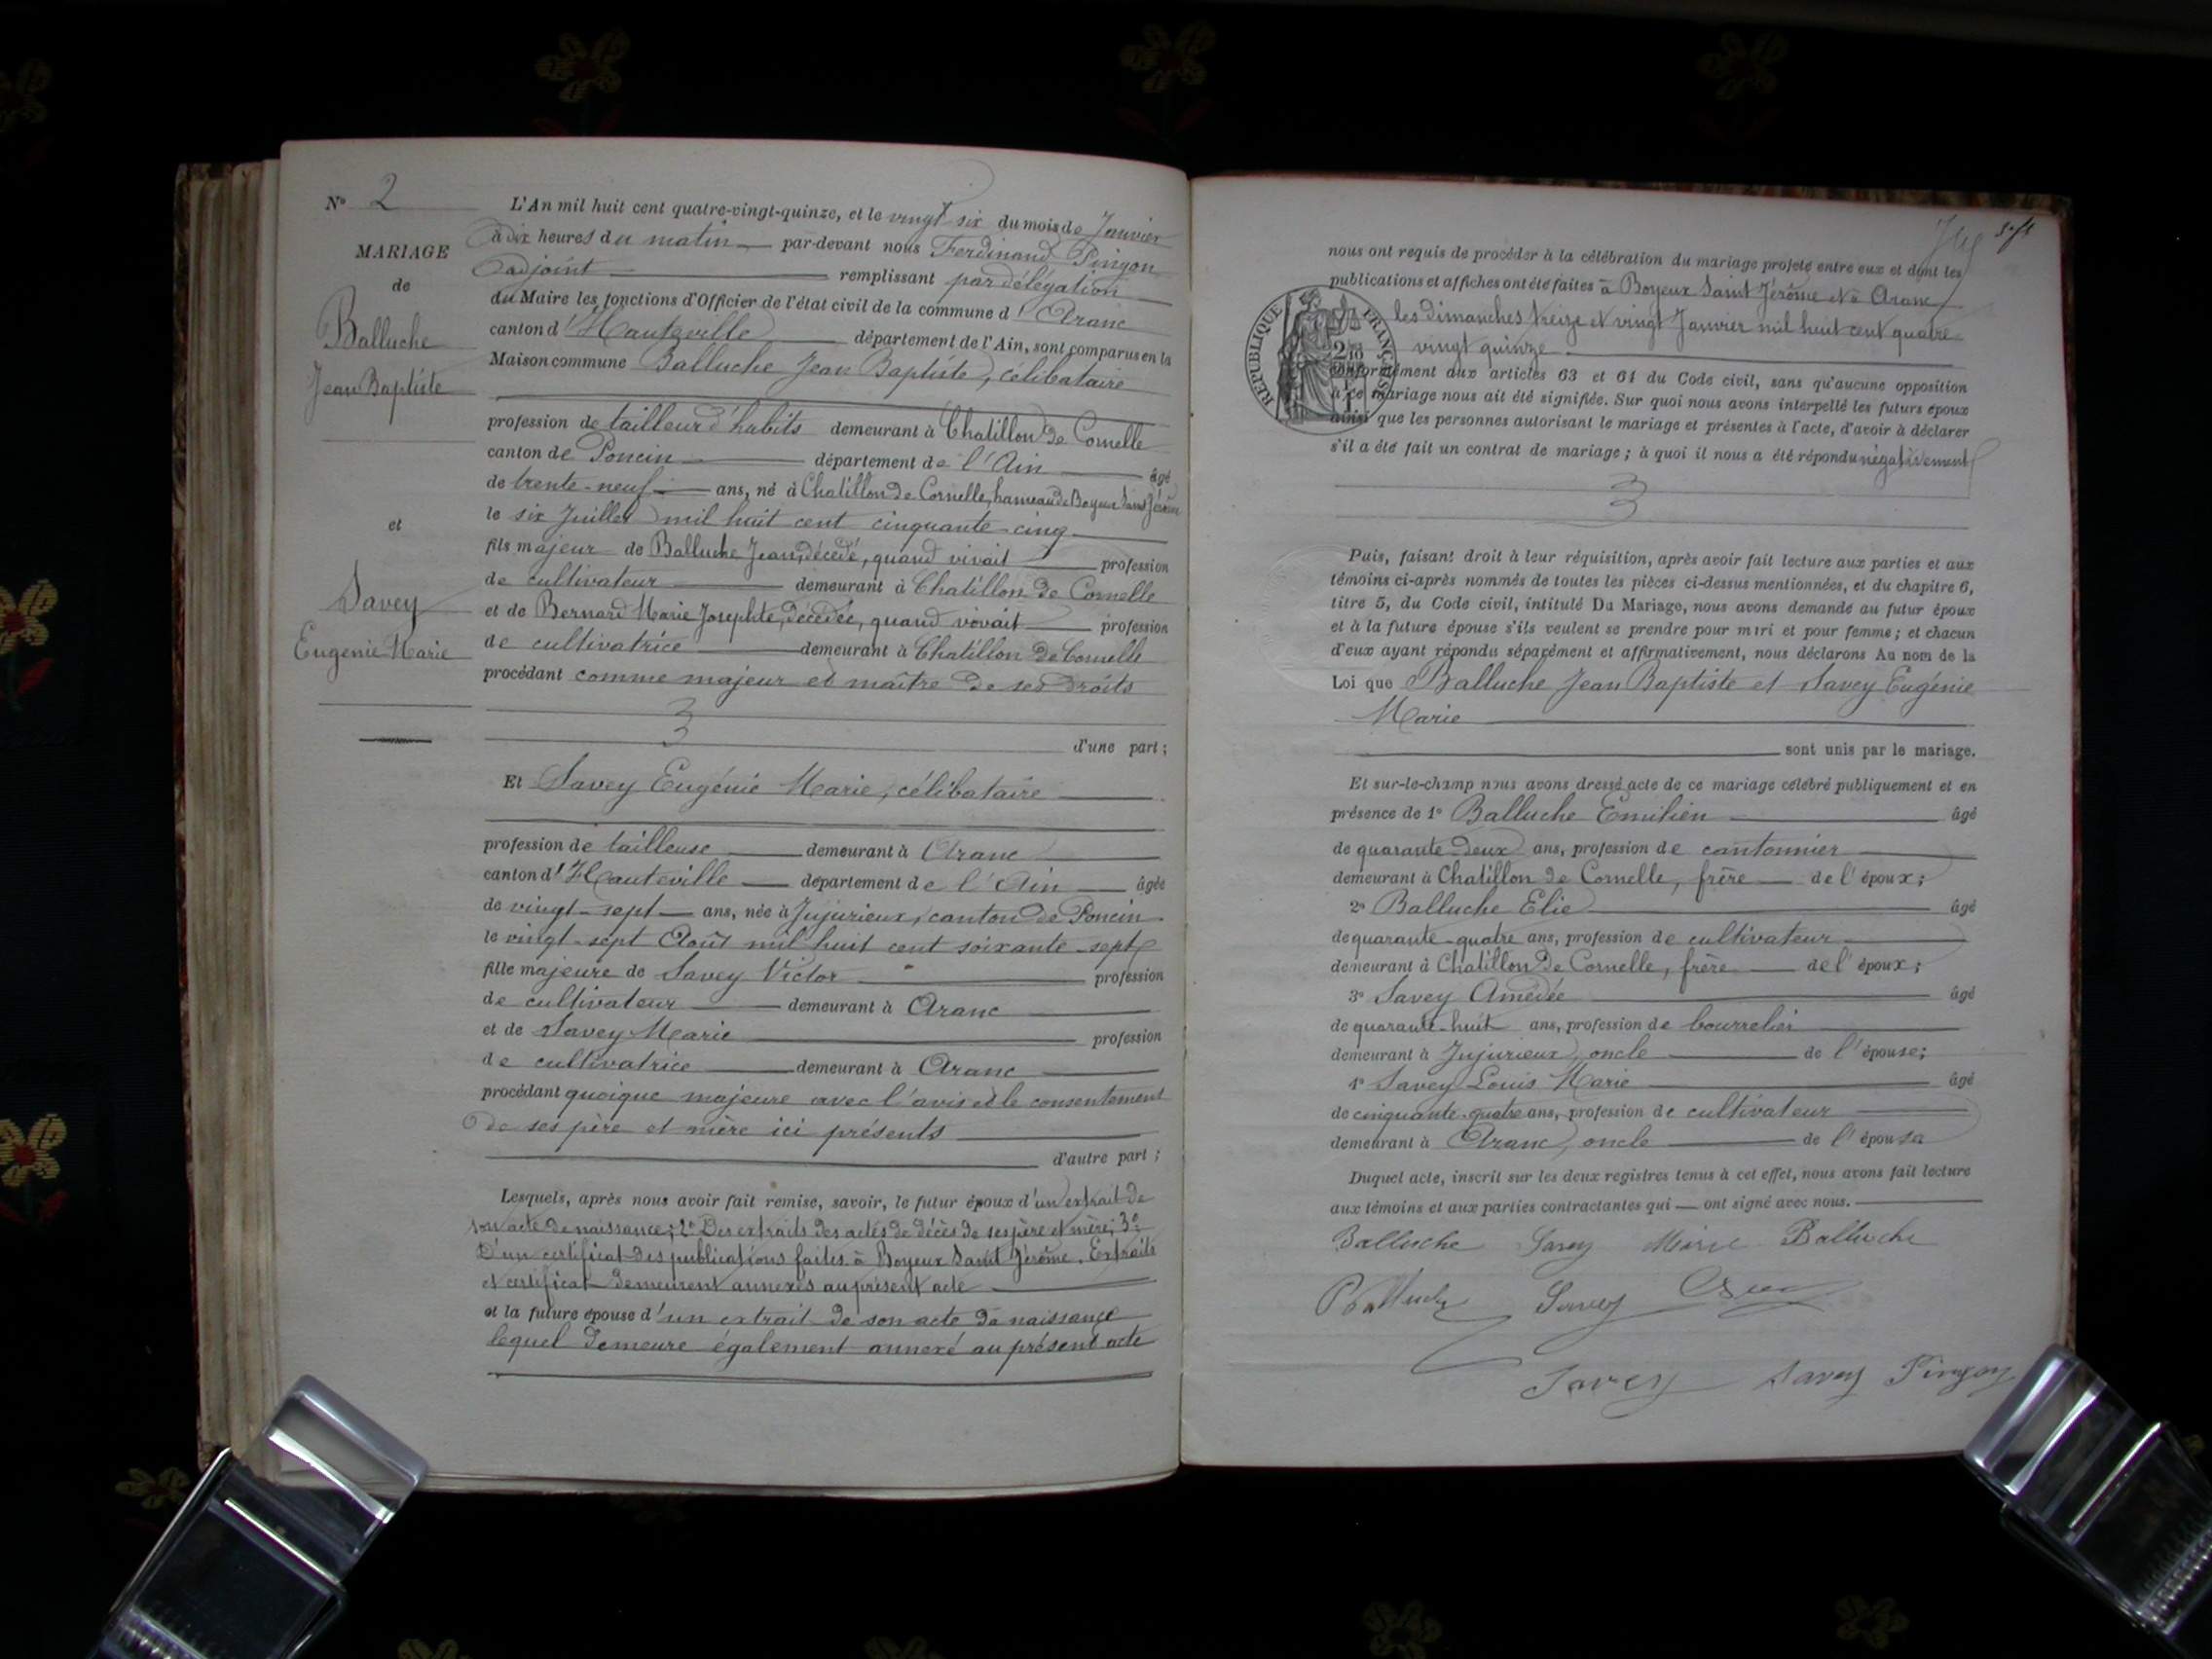 N° 2
MARIAGE
de
Balluche
Jean Baptiste
et
Savey
Eugénie Marie
L'An mil huit cent quatre-vingt-quinze, et le vingt six du mois de Janvier
à dix heures du matin par-devant nous Ferdinand Pingon
adjoint remplissant par délégation
du Maire les fonctions d'Officier de l'état civil de la commune d'Aranc
canton d'Hauteville département de l'Ain, sont comparus en la
Maison commune Balluche Jean Baptiste, célibataire
profession de tailleur d'habits demeurant à Chatillon de Cornelle
canton de Poncin département de l'Ain âgé
de trente-neuf ans, né à Chatillon de Cornelle, hameau de Boyeux Saint Jérôme
le six Juillet mil huit cent cinquante-cinq
fils majeur de Balluche Jean, décédé, quand vivait profession
de cultivateur demeurant à Chatillon de Cornelle
et de Bernard Marie Josephte, décédée, quand vivait profession
de cultivatrice demeurant à Chatillon de Cornelle
procédant comme majeur et maître de ses droits
d'une part ;
Et Savey Eugénie Marie, célibataire
profession de tailleuse demeurant à Aranc
canton d'Hauteville département de l'Ain âgée
de vingt-sept ans, née à Jujurieux, canton de Poncin
le vingt-sept Août mil huit cent soixante-sept
fille majeure de Savey Victor profession
de cultivateur demeurant à Aranc
et de Savey Marie profession
de cultivatrice demeurant à Aranc
procédant quoique majeure avec l'avis et le consentement
de ses père et mère ici présents
d'autre part ;
Lesquels, après nous avoir fait remise, savoir, le futur époux d'un extrait de
son acte de naissance; 2° Des extraits des actes de décès de ses père et mère; 3°
D'un certificat des publications faites à Boyeux Saint Jérôme. Extraits
et certificat demeurent annexés au présent acte
et la future épouse d'un extrait de son acte de naissance
lequel demeure également annexé au présent acte
nous ont requis de procéder à la célébration du mariage projeté entre eux et dont les
publications et affiches ont été faites à Boyeux Saint Jérôme et à Aranc
les dimanches treize et vingt Janvier mil huit cent quatre
vingt quinze
RÉPUBLIQUE FRANÇAISE
conformément aux articles 63 et 64 du Code civil, sans qu'aucune opposition
à ce mariage nous ait été signifiée. Sur quoi nous avons interpellé les futurs époux
ainsi que les personnes autorisant le mariage et présentes à l'acte, d'avoir à déclarer
s'il a été fait un contrat de mariage ; à quoi il nous a été répondu négativement
Puis, faisant droit à leur réquisition, après avoir fait lecture aux parties et aux
témoins ci-après nommés de toutes les pièces ci-dessus mentionnées, et du chapitre 6,
titre 5, du Code civil, intitulé Du Mariage, nous avons demandé au futur époux
et à la future épouse s'ils veulent se prendre pour mari et pour femme ; et chacun
d'eux ayant répondu séparément et affirmativement, nous déclarons Au nom de la
Loi que Balluche Jean Baptiste et Savey Eugénie
Marie
sont unis par le mariage.
Et sur-le-champ nous avons dressé acte de ce mariage célébré publiquement et en
présence de 1° Balluche Emilien âgé
de quarante deux ans, profession de cantonnier
demeurant à Chatillon de Cornelle, frère de l'époux ;
2° Balluche Elie âgé
de quarante-quatre ans, profession de cultivateur
demeurant à Chatillon de Cornelle, frère de l'époux ;
3° Savey Amédée âgé
de quarante-huit ans, profession de bourrelier
demeurant à Jujurieux, oncle de l'épouse ;
4° Savey Louis Marie âgé
de cinquante-quatre ans, profession de cultivateur
demeurant à Aranc, oncle de l'épouse
Duquel acte, inscrit sur les deux registres tenus à cet effet, nous avons fait lecture
aux témoins et aux parties contractantes qui ont signé avec nous.
Balluche Savey Marie Balluche
Balluche Savey
Savey Savey Pingon